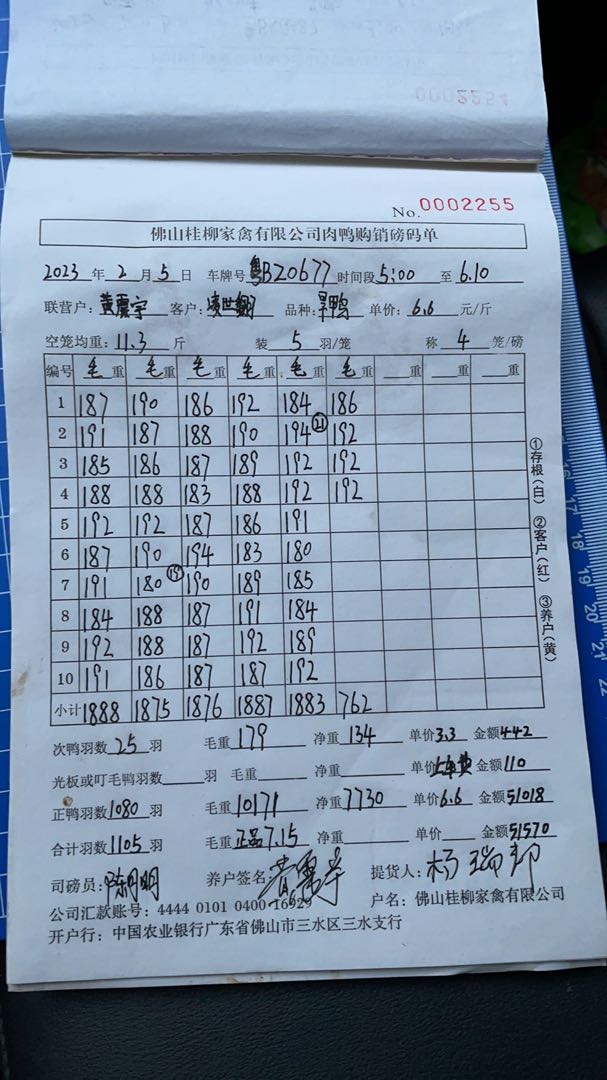 0002254
No. 0002255
佛山桂柳家禽有限公司肉鸭购销磅码单
2023 年 2 月 5 日 车牌号 粤B20677 时间段 5:00 至 6.10
联营户: 黄震宇 客户: 凌世翻 品种: 旱鸭 单价: 6.6 元/斤
空笼均重: 11.3 斤 装 5 羽/笼 称 4 笼/磅
编号 毛重 毛重 毛重 毛重 毛重 毛重 重 重 重
1 187 190 186 192 184 186
2 191 187 188 190 194 ㉑ 192
3 185 186 187 189 192 192
4 188 188 183 188 192 192
5 192 192 187 186 191
6 187 190 194 183 180
7 191 180 ⑲ 190 189 185
8 184 188 187 191 184
9 192 188 187 192 189
10 191 186 187 187 192
小计 1888 1875 1876 1887 1883 762
①存根(白) ②客户(红) ③养户(黄)
次鸭羽数 25 羽 毛重 179 净重 134 单价 3.3 金额 442
光板或叮毛鸭羽数 羽 毛重 净重 单价 上车费 金额 110
正鸭羽数 1080 羽 毛重 10171 净重 7730 单价 6.6 金额 51018
合计羽数 1105 羽 毛重 正品7.15 净重 单价 金额 51570
司磅员: 陈明明 养户签名: 黄震宇 提货人: 杨瑞邦
公司汇款账号: 4444 0101 0400 16929 户名: 佛山桂柳家禽有限公司
开户行: 中国农业银行广东省佛山市三水区三水支行
16 17 18 19 20 21 22